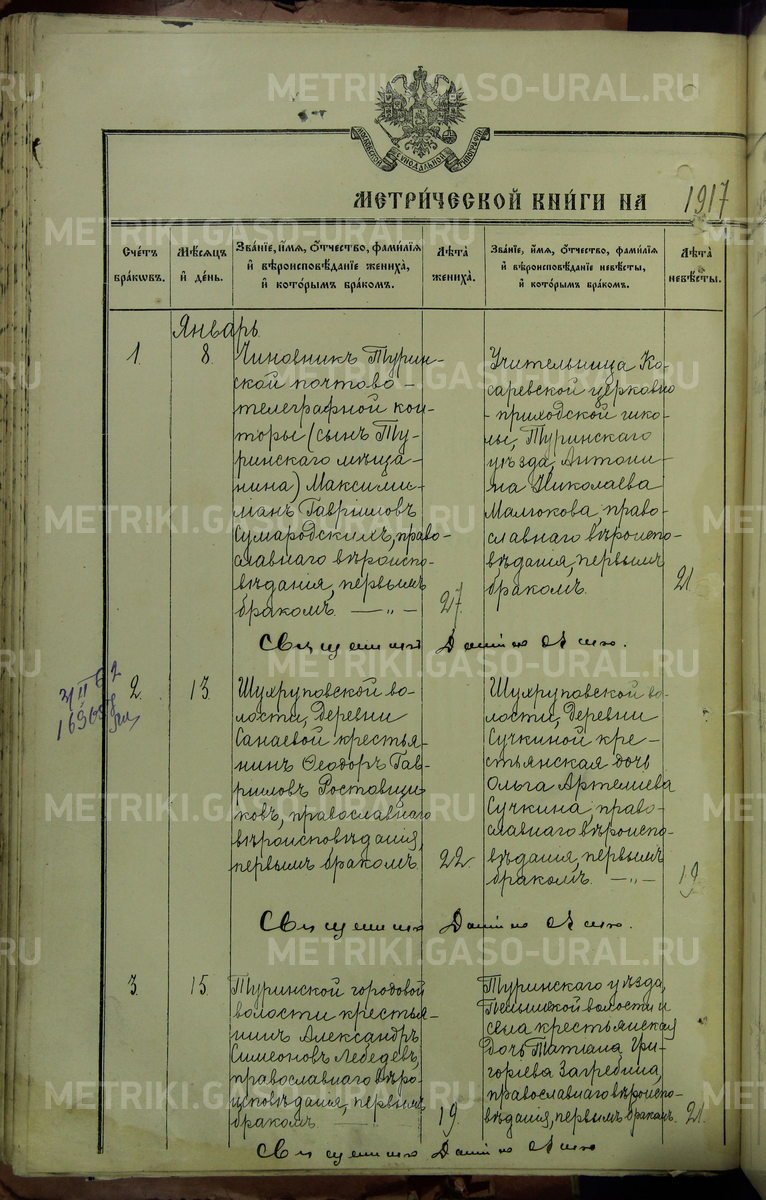 МОСКОВСКОЙ СѴНОДАЛЬНОЙ ТИПОГРАФІИ
МЕТРИ́ЧЕСКОЙ КНИ́ГИ НА 1917
Сче́тъ бра́кѡвъ.
Мѣ́сяцъ и҆ де́нь.
Зва́нїе, и҆́мя, ѻ҆́тчество, фами́лїя и҆ вѣроисповѣ́данїе жениха̀, и҆ кото́рымъ бра́комъ.
Лѣ̑та̀ жениха̀.
Зва́нїе, и҆́мя, ѻ҆́тчество, фами́лїя и҆ вѣроисповѣ́данїе невѣ́сты, и҆ кото́рымъ бра́комъ.
Лѣ̑та̀ невѣ́сты.
Январь.
1. 8.
Чиновникъ Турин-
ской почтово-
телеграфной кон-
торы (сынъ Ту-
ринскаго мѣща-
нина) Максими-
лианъ Гавриловъ
Сумародскихъ, право-
славнаго вѣроиспо-
вѣдания, первымъ
бракомъ. —„— 27.
Учительница Ко-
саревской церковно
-приходской шко-
лы, Туринскаго
уѣзда, Антони-
на Николаева
Малюкова, право-
славнаго вѣроиспо-
вѣдания, первымъ
бракомъ. 21
Священникъ
2. 13.
3/II 62
Шухруповской во-
лости, деревни
Санаевой крестья-
нинъ Ѳеодоръ Гав-
риловъ Ростовщи-
ковъ, православнаго
вѣроисповѣдания,
первымъ бракомъ. 22.
Шухруповской во-
лости, деревни
Сучкиной кре-
стьянская дочь
Ольга Артемиева
Сучкина, право-
славнаго вѣроиспо-
вѣдания, первымъ
бракомъ. —„— 19.
Священникъ
3. 15.
Туринской городовой
волости крестья-
нинъ Александръ
Симеоновъ Лебедевъ,
православнаго вѣро-
исповѣдания, первымъ
бракомъ. 19.
Туринскаго уѣзда,
волости и
села крестьянская
дочь Татиана Гри-
горьева Загребина,
православнаго вѣроиспо-
вѣдания, первымъ бракомъ. 21.
Священникъ
METRIKI.GASO-URAL.RU